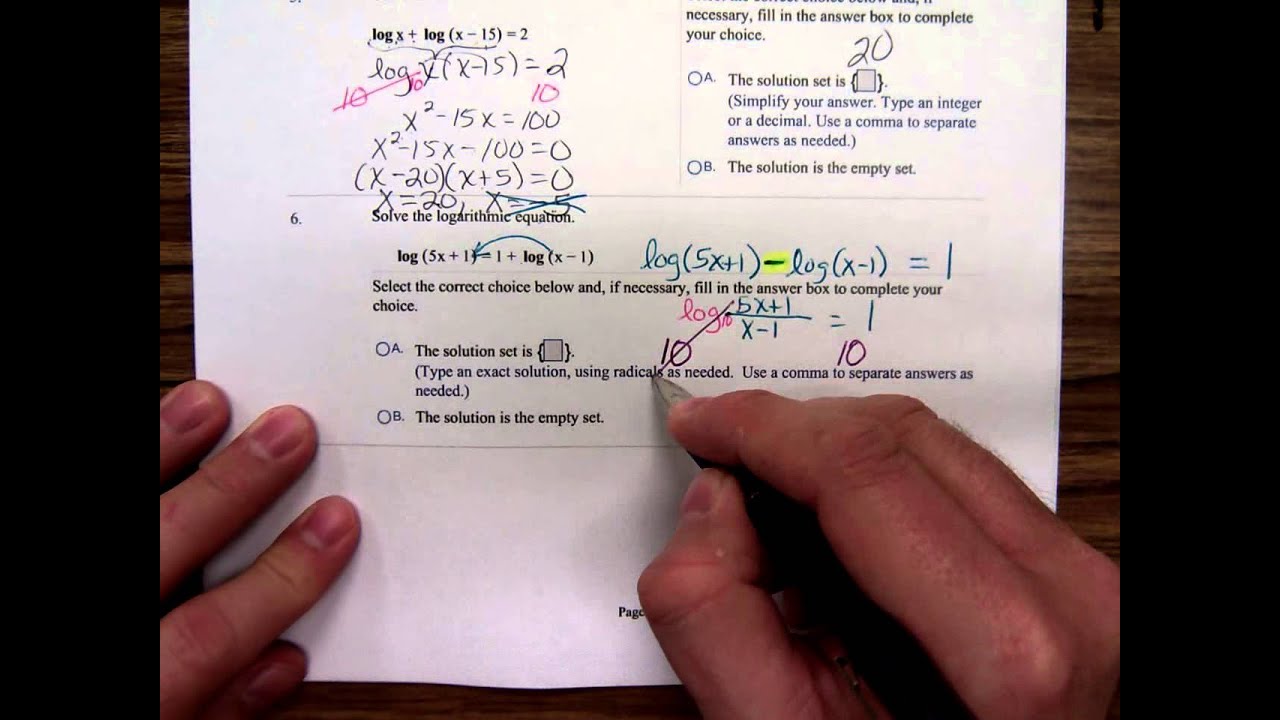 log x + log (x − 15) = 2
log₁₀ x(x-15) = 2
10 10
x² - 15x = 100
x² - 15x - 100 = 0
(x-20)(x+5) = 0
x = 20, x = -5
necessary, fill in the answer box to complete
your choice.
20
A. The solution set is { }.
(Simplify your answer. Type an integer
or a decimal. Use a comma to separate
answers as needed.)
B. The solution is the empty set.
6. Solve the logarithmic equation.
log (5x + 1) = 1 + log (x − 1)
log(5x+1) - log(x-1) = 1
Select the correct choice below and, if necessary, fill in the answer box to complete your
choice.
log₁₀ 5x+1 = 1
x-1
10 10
A. The solution set is { }.
(Type an exact solution, using radicals as needed. Use a comma to separate answers as
needed.)
B. The solution is the empty set.
Page